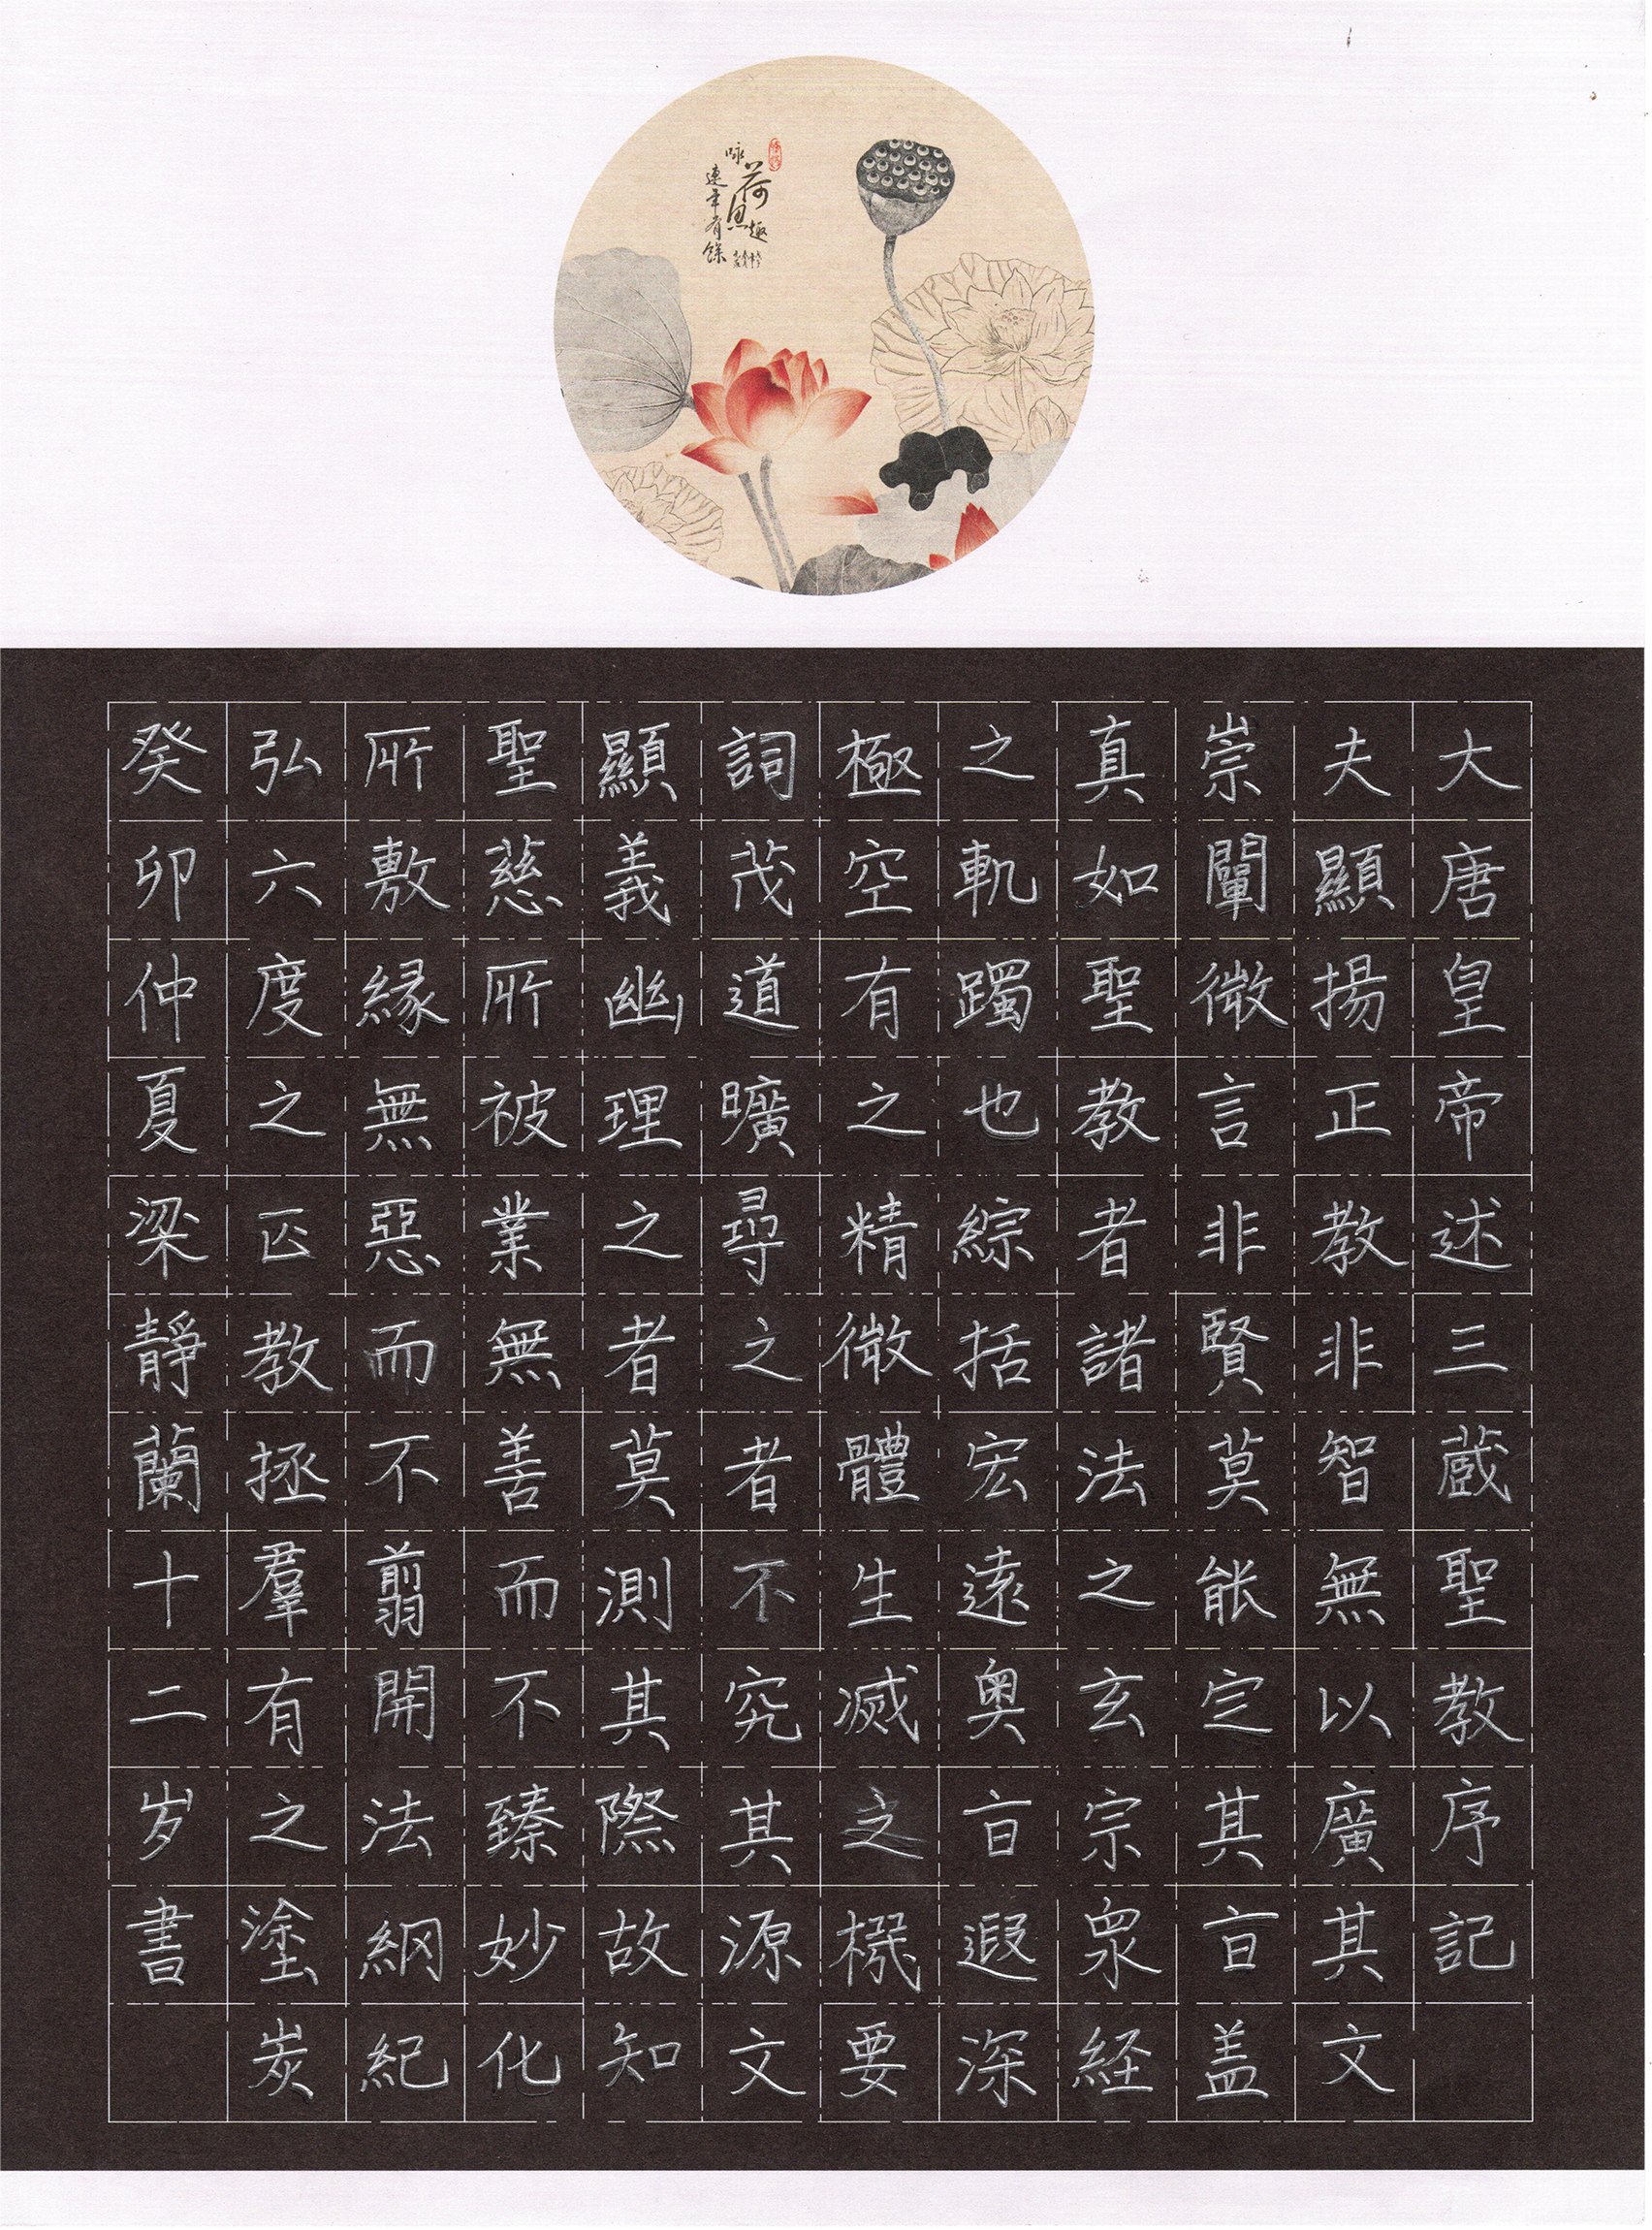 咏荷思趣
連年有餘
大唐皇帝述三蔵聖教序記
夫顯揚正教非智無以廣其文
崇闡微言非賢莫能定其旨盖
真如聖教者諸法之玄宗衆経
之軌躅也綜括宏遠奥旨遐深
極空有之精微體生滅之機要
詞茂道曠尋之者不究其源文
顯義幽理之者莫測其際故知
聖慈所被業無善而不臻妙化
所敷縁無惡而不翦開法網紀
弘六度之正教拯羣有之塗炭
癸卯仲夏梁靜蘭十二岁書